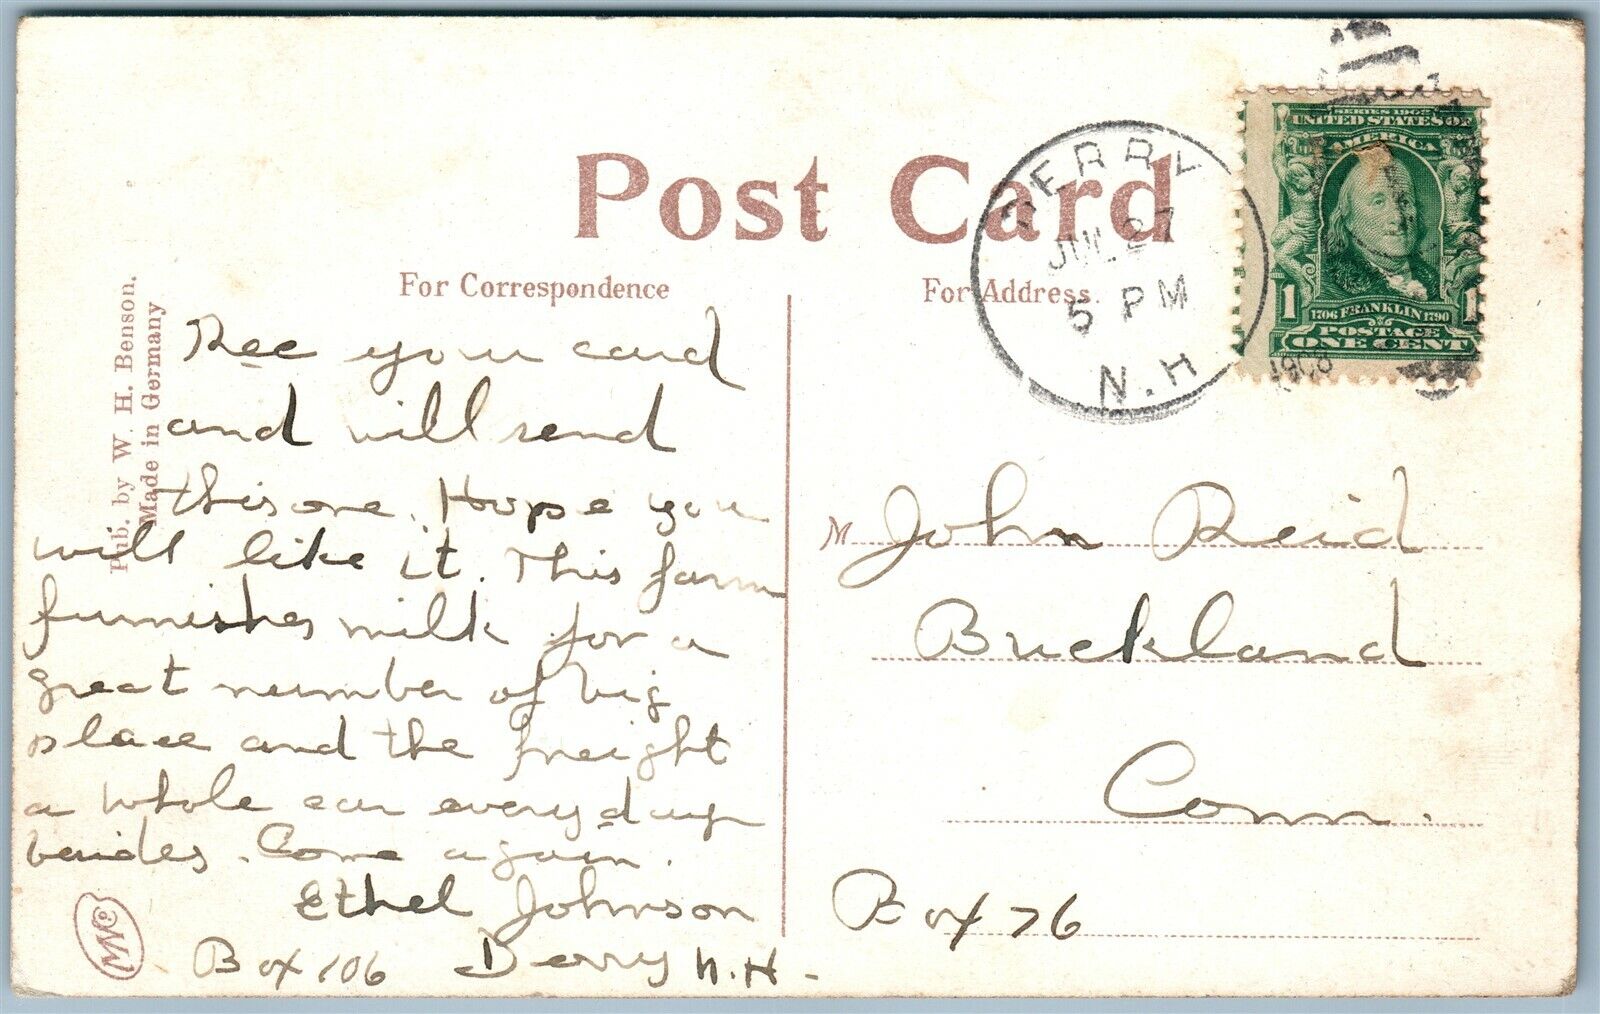 Post Card
For Correspondence
For Address.
Pub. by W. H. Benson.
Made in Germany
DERRY
JUL 27
5 PM
N.H
1908
SERIES 1902
UNITED STATES OF
AMERICA
1 1
1706 FRANKLIN 1790
POSTAGE
ONE CENT
Rec your card
and will send
this one. Hope you
will like it. This farm
furnishes milk for a
great number of big
place and the freight
a whole car every day
besides. Come again.
Ethel Johnson
Box 106 Derry N.H.
M John Reid
Buckland
Conn.
Box 76